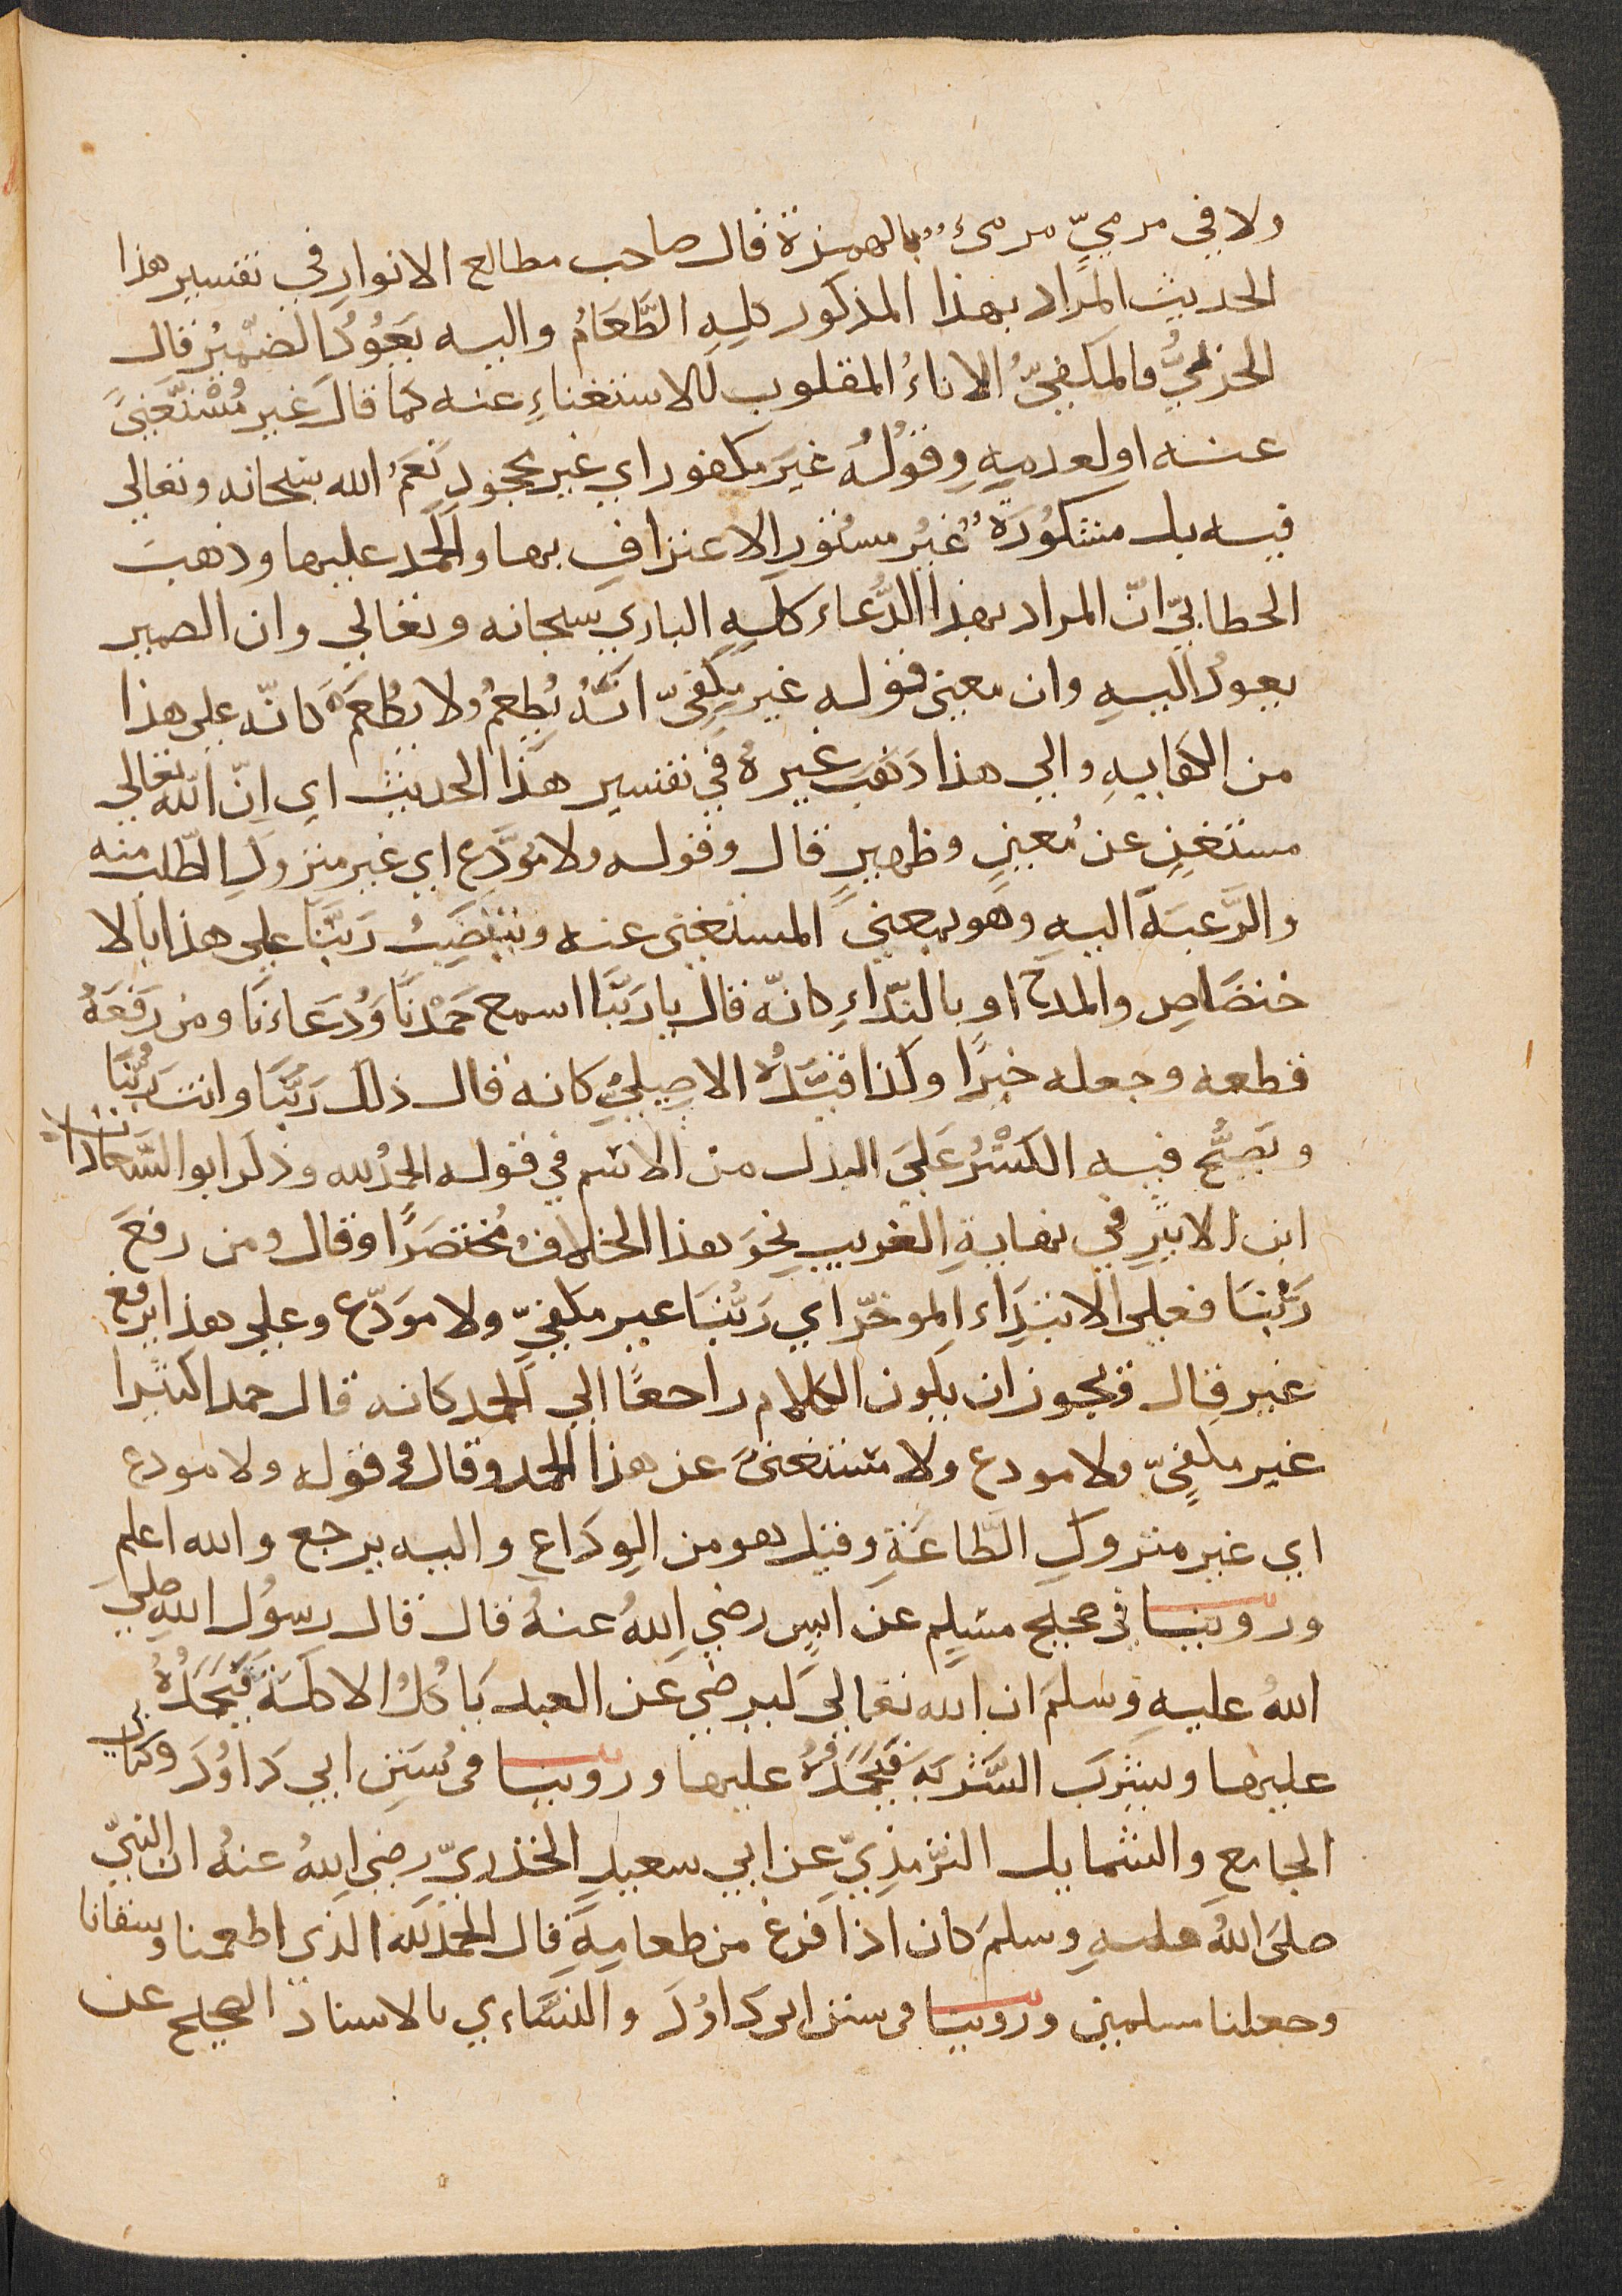 ولا في مرميّ مرمئ بالهمزة قال صاحب مطالع الانوار في تفسير هذا
الحديث المراد بهذا المذكور كلِه الطَّعَامُ واليه يَعُوُدُ الضمّيُر قال
الحزبيُّ فالمكفيّ الاناءُ المقلوب للاستغناءِ عنه كما قالَ غير مُسْتَغنىً
عنه او لعدمِهِ وقوْلُه غيَر مكفور اي غير مجحود نَعَمُ الله سبحانه وتعالى
فيه بل مشكُورَةٌ غيُر مستُورِ الاعترافِ بها والحمد عليها وذهبَ
الخطابيّ انّ المراد بهذا الدُّعاء كلِهِ الباري سبحانه وتعالي وان الضمير
يعودُ اليهِ وان معنى قوله غير مكفىّ انَّهُ يُطعِمُ ولا يُطعَمُ كانّه على هذا
من الكفايهِ والي هذا ذهَبَ غيره في تفسير هذا الحديث اي اِنّ اللّه تعالي
مستغنٍ عن مُعينٍ وظهيرٍ قال وقوله ولا مُوَدَّعٍ اي غير متروكِ الطّلب منه
والرَّغبَة اليهِ وهو بمعنىَ المستغنى عنه وينتصَبُ رَبَّنَا على هذا بالا
ختصَاصِ والمدحِ او بالندّاءِ كانّه قال يا رَبَّنَا اسمع حَمْدنَا وَدُعَاءنَا ومن رَفعَهُ
قطعه وجعله خبرًا وكذا قيَّدهُ الاصِيليُّ كانه قال ذلك رَبُّنَا وانتَ رَبُّنَا
ويَصِحُّ فيه الكَسْرُ عَلىَ البدل من الاسم في قوله الحمدُ لله وذكر ابو السَّعادات
ابن الاثيِر في نهايةِ الغريبِ نحوَ هذا الخلافِ مُختصَرًا وقال ومن رفعَ
رَبُّنَا فعلى الابتدَاءِ الموخّر اي رَبُّنَا غير مكفيّ ولا موَدّع وعلى هذا يرفع
غير قال ويجوز ان يكون الكلام راجعًا الي الحمد كانه قال حمدا كثيرا
غير مكفيّ ولا مودع ولا مستغنىً عن هذا الحمد وقال في قوله ولا مودع
اي غير متروكِ الطّاعَةِ وقيل هو من الوِدَاعِ واليه يرجع والله اعلم
وروينا في صحيح مسلِم عن انسٍ رضي اللهُ عنهُ قال قال رسُول اللهِ صلي
اللهُ عليهِ وسلمَ ان الله تعالىَ ليرضي عَن العبد يَا كُلُ الاكلَة فيَحمَدُهُ
عليها ويشرَبَ الشَّربَة فيَحمَدُهُ عليها وروينا في سُنَنِ ابي دَاوُدَ وكتابي
الجامعِ والشمايل الترّمذِيّ عن ابي سعيدِ الخذريّ رضي اللهُ عنهُ ان النبيّ
صلىَ اللهُ عليهِ وسلمَ كان اذا فرغَ من طعامِهِ قال الحمد لله الذي اطعمنا وسقانا
وجعلنا مسلمين وروينا في سنن ابي دَاوُدَ والنسَّاءي بالاسناد الصحيح عن